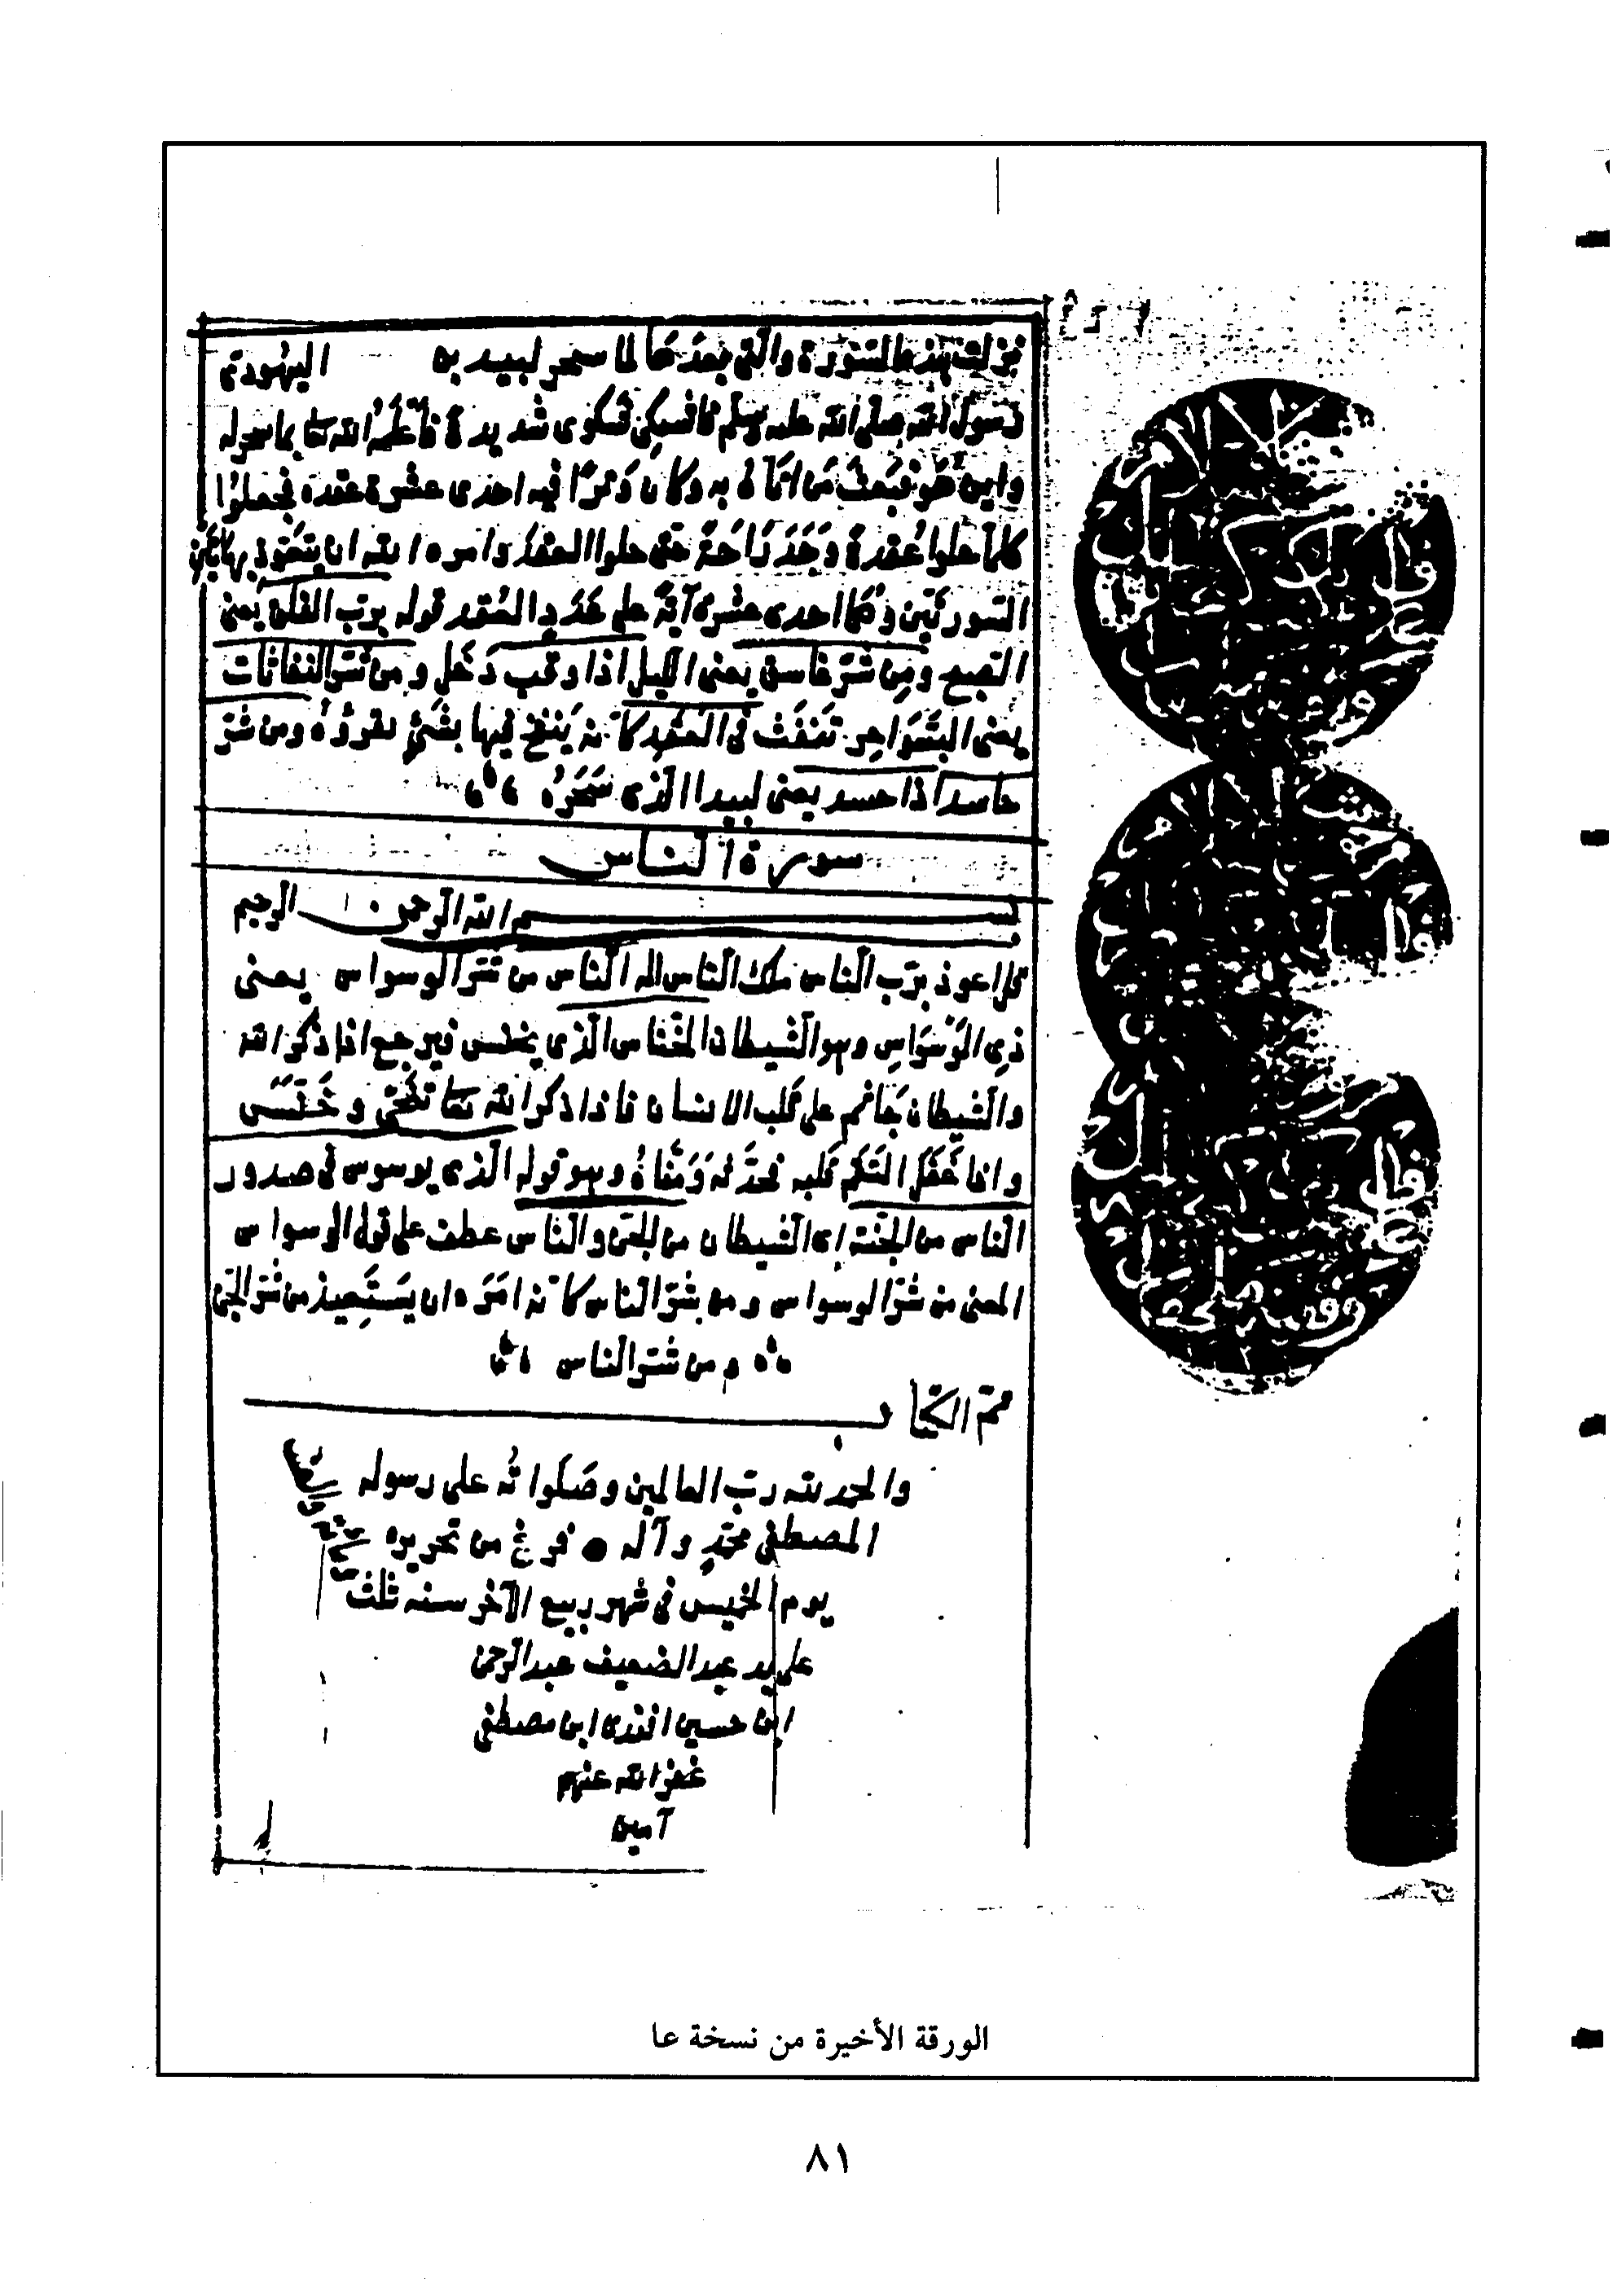 نزلت هذه السورة والتي بعدها لما سحر لبيد به اليهودي
رسول الله صلى الله عليه وسلم فاشتكى شكوى شديدة فاعلمه الله تعا بما سحر له
واين هو فبعث من اتاه به وكان وترًا فيه احدى عشرة عقدة فجعلوا
كلما حلوا عقدة وَجَدَ رَاحَةً حتى حلوا العقد وامره الله ان يتعوذ بهاتين
السورتين وهما احدى عشرة آية على عدد العقد قوله برب الفلق يعنى
الصبح ومن شر غاسق يعنى الليل اذا وقب دخل ومن شر النفاثات
يعنى السَّوَاحِر تنفث في العقد كانه ينفخ فيها بشئ يقرؤه ومن شر
حاسد اذا حسد يعنى لبيدا الذى سَحَرَهُ
سورة الناس
بسم الله الرحمن الرحيم
قل اعوذ برب الناس ملك الناس اله الناس من شر الوسواس يعنى
ذي الوَسْوَاسِ وهو الشيطان الخناس الذى يخنس فيرجع اذا ذكر الله
والشيطان جاثم على قلب الانسان فاذا ذكر الله تعا تنحّى و خَنَسَ
واذا غَفَلَ التقم قلبه فحدّثه وَمَنَّاهُ وهو قوله الذى يوسوس في صدور
الناس من الجنة اى الشيطان من الجن والناس عطف على قوله الوسواس
المعنى من شر الوسواس ومن شر الناس كانه امَرَه ان يستعيذ من شر الجن
ومن شر الناس
تم الكتاب
والحمد لله رب العالمين وصلواته على رسوله
المصطفى محمد وآله فرغ من تحريره
يوم الخميس في شهر ربيع الآخر سنه ثلث
على يد عبد الضعيف عبد الرحمن
ابن حسين افندى ابن مصطفى
غفر الله عنهم
آمين
الورقة الأخيرة من نسخة عا
٨١